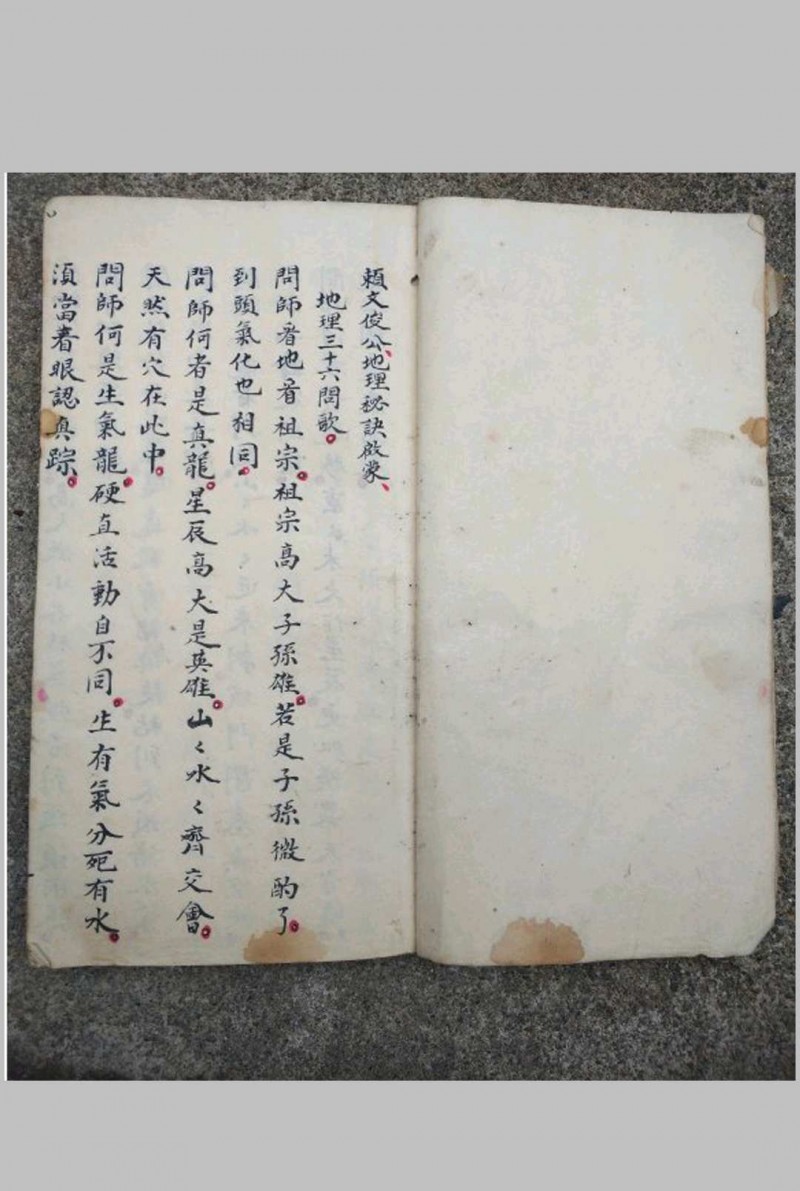 賴文俊公、地理秘訣啟蒙、
地理三十六問歌。
問師看地看祖宗。祖宗高大子孫雄。若是子孫微酌了。
到頭氣化也相同。
問師何者是真龍。星辰高大是英雄。山〻水〻齊交會。
天然有穴在此中。
問師何是生氣龍。硬直活動自不同。生有氣分死有水。
須當着眼認真踪。